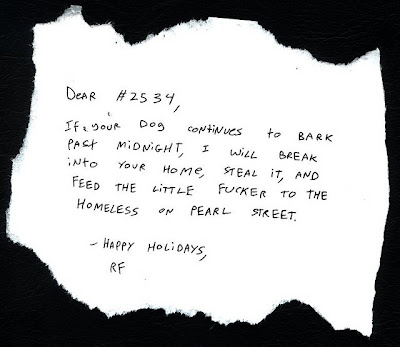 DEAR #2534,
IF YOUR DOG CONTINUES TO BARK
PAST MIDNIGHT, I WILL BREAK
INTO YOUR HOME, STEAL IT, AND
FEED THE LITTLE FUCKER TO THE
HOMELESS ON PEARL STREET.
- HAPPY HOLIDAYS,
RF